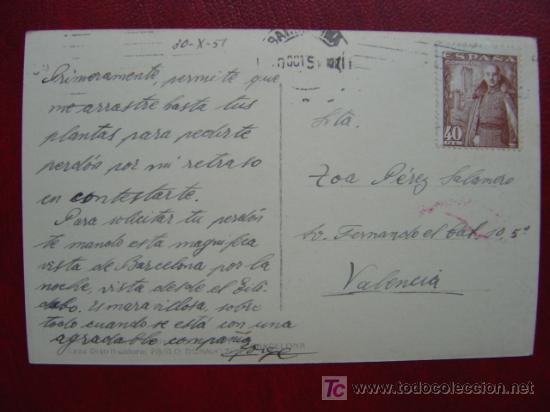 30-X-51
Primeramente, permite que
me arrastre hasta tus
plantas para pedirte
perdón por mi retraso
en contestarte.
Para solicitar tu perdón
te mando esta magnífica
vista de Barcelona por la
noche, vista desde el Tibi
dabo. Es maravillosa, sobre
todo cuando se está con una
agradable compañía
Jorge
BARCELONA
ESPAÑA
CORREOS
40
CTS
Srta.
Zoa Pérez Salanero
Av. Fernando el Cat. 10, 5ª
Valencia
TC
todocoleccion.net